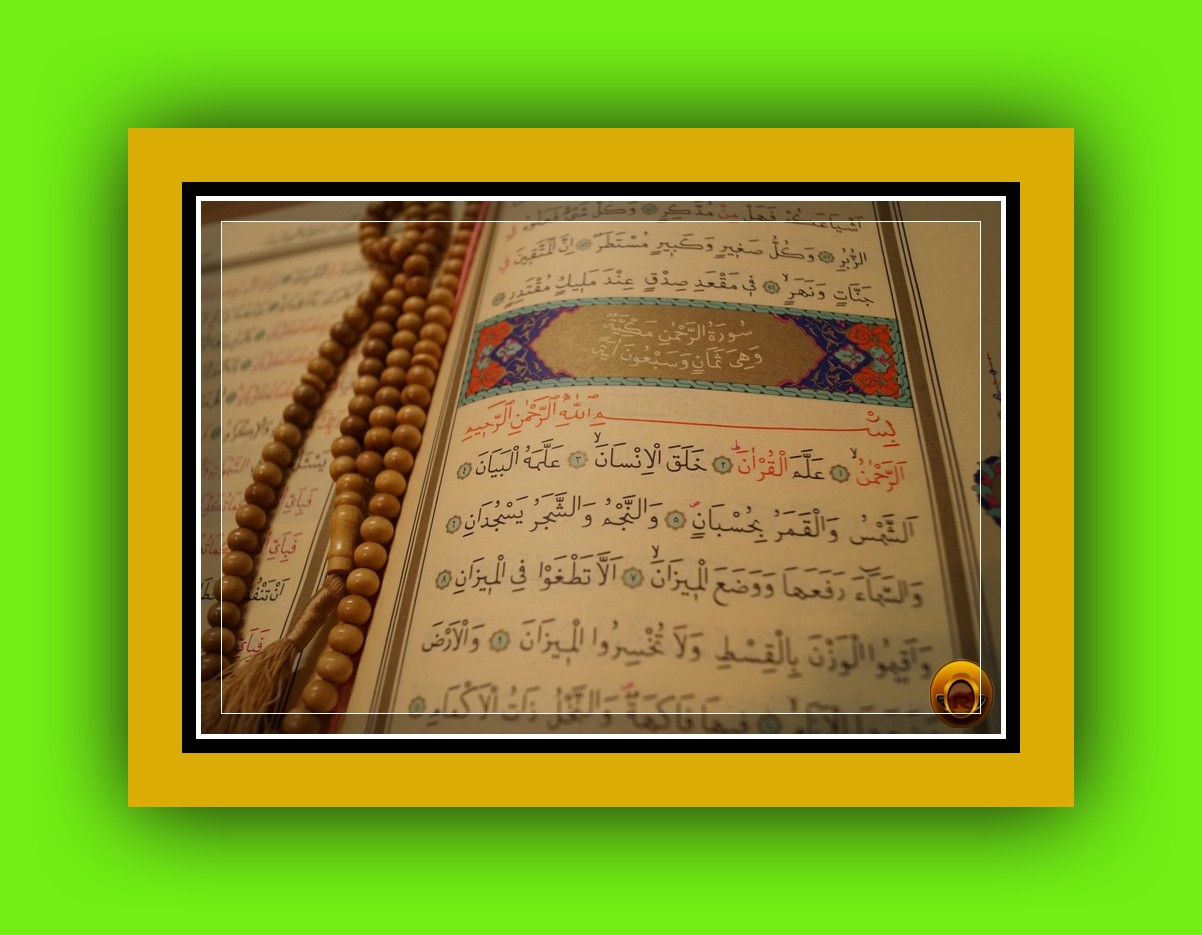 اَشْيَاعَكُمْ فَهَلْ مِنْ مُدَّكِرٍ وَكُلُّ شَيْءٍ فَعَلُوهُ فِي
الزُّبُرِ ٥٢ وَكُلُّ صَغِيرٍ وَكَبِيرٍ مُسْتَطَرٌ اِنَّ الْمُتَّقِينَ فِي
جَنَّاتٍ وَنَهَرٍ ٥٤ فِي مَقْعَدِ صِدْقٍ عِنْدَ مَلِيكٍ مُقْتَدِرٍ
سُورَةُ الرَّحْمٰنِ مَكِّيَّةٌ
وَهِىَ ثَمَانٍ وَسَبْعُونَ اٰيَةً
بِسْمِ اللّٰهِ الرَّحْمٰنِ الرَّحِيمِ
اَلرَّحْمٰنُ ١ عَلَّمَ الْقُرْاٰنَ ٢ خَلَقَ الْاِنْسَانَ ٣ عَلَّمَهُ الْبَيَانَ ٤
اَلشَّمْسُ وَالْقَمَرُ بِحُسْبَانٍ ٥ وَالنَّجْمُ وَالشَّجَرُ يَسْجُدَانِ ٦
وَالسَّمَاءَ رَفَعَهَا وَوَضَعَ الْمِيزَانَ ٧ اَلَّا تَطْغَوْا فِي الْمِيزَانِ ٨
وَاَقِيمُوا الْوَزْنَ بِالْقِسْطِ وَلَا تُخْسِرُوا الْمِيزَانَ ٩ وَالْاَرْضَ
فِيهَا فَاكِهَةٌ وَالنَّخْلُ ذَاتُ الْاَكْمَامِ